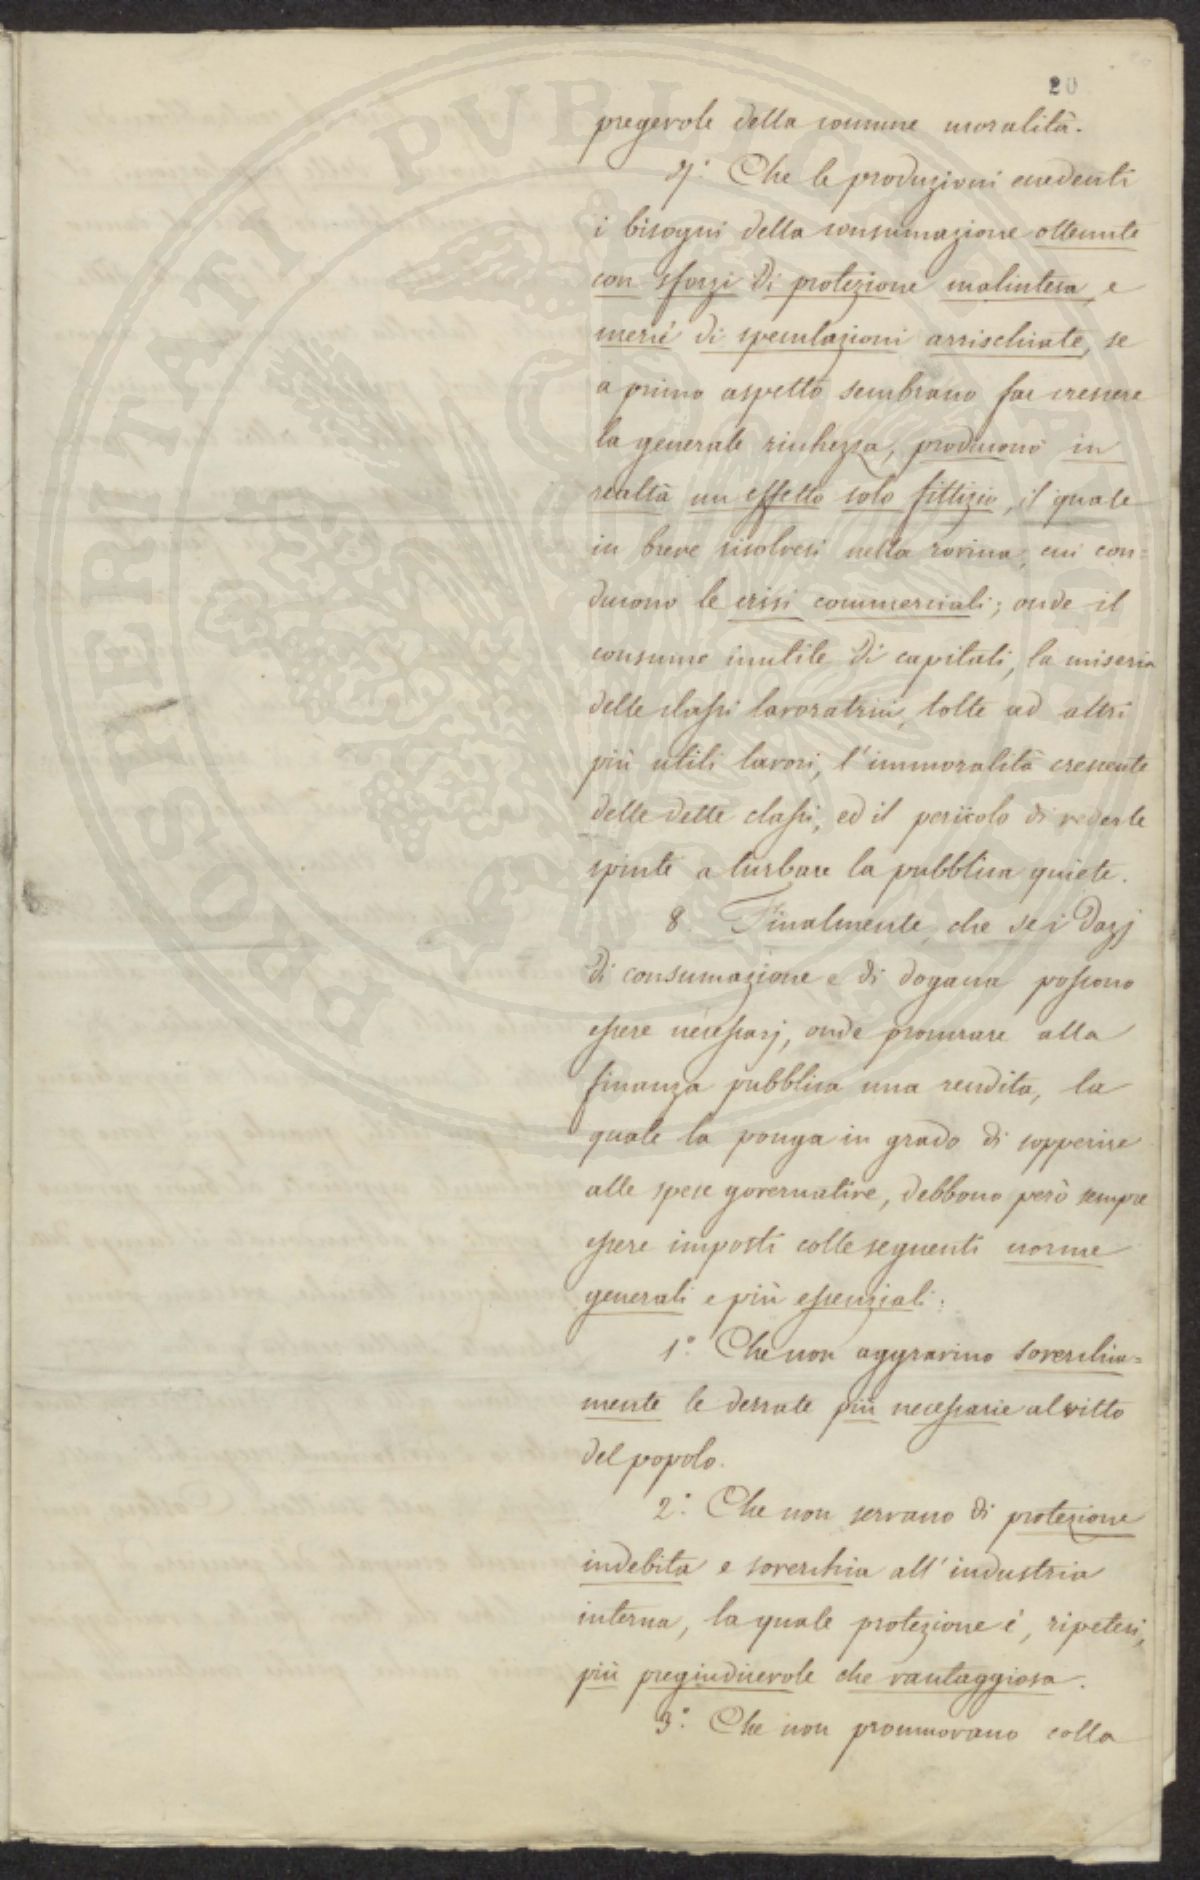 20
pregevole della comune moralità.
7.° Che le produzioni eccedenti
i bisogni della consumazione ottenute
con sforzi di protezione malintesa, e
mercè di speculazioni arrischiate, se
a primo aspetto sembrano far crescere
la generale ricchezza, producono in
realtà un effetto solo fittizio, il quale
in breve risolvesi nella rovina, cui con=
ducono le crisi commerciali; onde il
consumo inutile di capitali, la miseria
delle classi lavoratrici, tolte ad altri
più utili lavori, l'immoralità crescente
delle dette classi, ed il pericolo di vederle
spinte a turbare la pubblica quiete.
8. Finalmente, che se i Dazj
di consumazione e di dogana possono
essere necessarj, onde procurare alla
finanza pubblica una rendita, la
quale la ponga in grado di sopperire
alle spese governative, debbono però sempre
essere imposti colle seguenti norme
generali e più essenziali:
1.° Che non aggravino soverchia=
mente le derrate più necessarie al vitto
del popolo.
2.° Che non servano di protezione
indebita e soverchia all'industria
interna, la quale protezione è, ripetesi,
più pregiudicevole che vantaggiosa.
3.° Che non promuovano colla
PROSPERITATI PVBLICAE